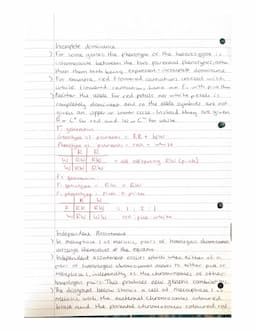 Incomplete dominance
> For some genes the phenotype of the heterozygote is
intermediate between the two parental phenotypes, rather
than them both being expressed - incomplete dominance
> For example, red flowered carnations crossed with
white flowered carnations, have an F1 with pink flowers
> Neither the allele for red petals nor white petals is
completely dominant and so the allele symbols are not
given an upper or lower case. Instead they are given
for red and for white
F1 generation
Genotype of parents = RR + WW
Phenotype of parents = red + white
R R
W RW RW = all offspring RW (pink)
W RW RW
F2 generation
F1 genotype = RW x RW
F1 phenotype = pink x pink
R W
R RR RW 1 : 2 : 1
W RW WW red : pink : white
Independent Assortment
> In metaphase I of meiosis, pairs of homologous chromosomes
arrange themselves at the equator
> Independent assortment occurs which when either of a
pair of homologous chromosomes moves to either pole in
Anaphase I, independently of the chromosomes of other
homologous pairs. This produces new genetic combinations
> The diagram below shows a cell at metaphase I of
meiosis with the maternal chromosomes coloured
black and the paternal chromosomes coloured red